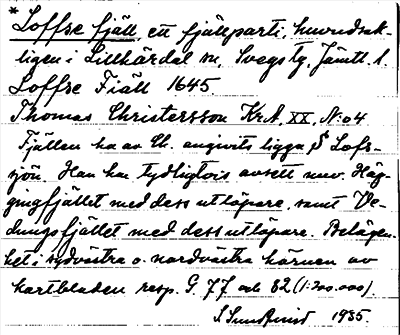 *
Loffse fjäll, ett fjällparti, huvudsak-
ligen i Lillhärdal sn, Svegs tg, Jämtl. l.
Loffse Fiäll 1645.
Thomas Christersson Kr.A. XX, N:o 4
Fjällen ha av Ch. angivits ligga S Lofs-
sjön. Han har tydligtvis avsett nuv. Häg-
gingfjället med dess utlöpare, samt Ve-
dungsfjället med dess utlöpare. Belägen-
het i sydvästra o. nordvästra hörnen av
kartbladen resp. G. 77 och 82 (1:200.000).
S Sundqvist 1935.